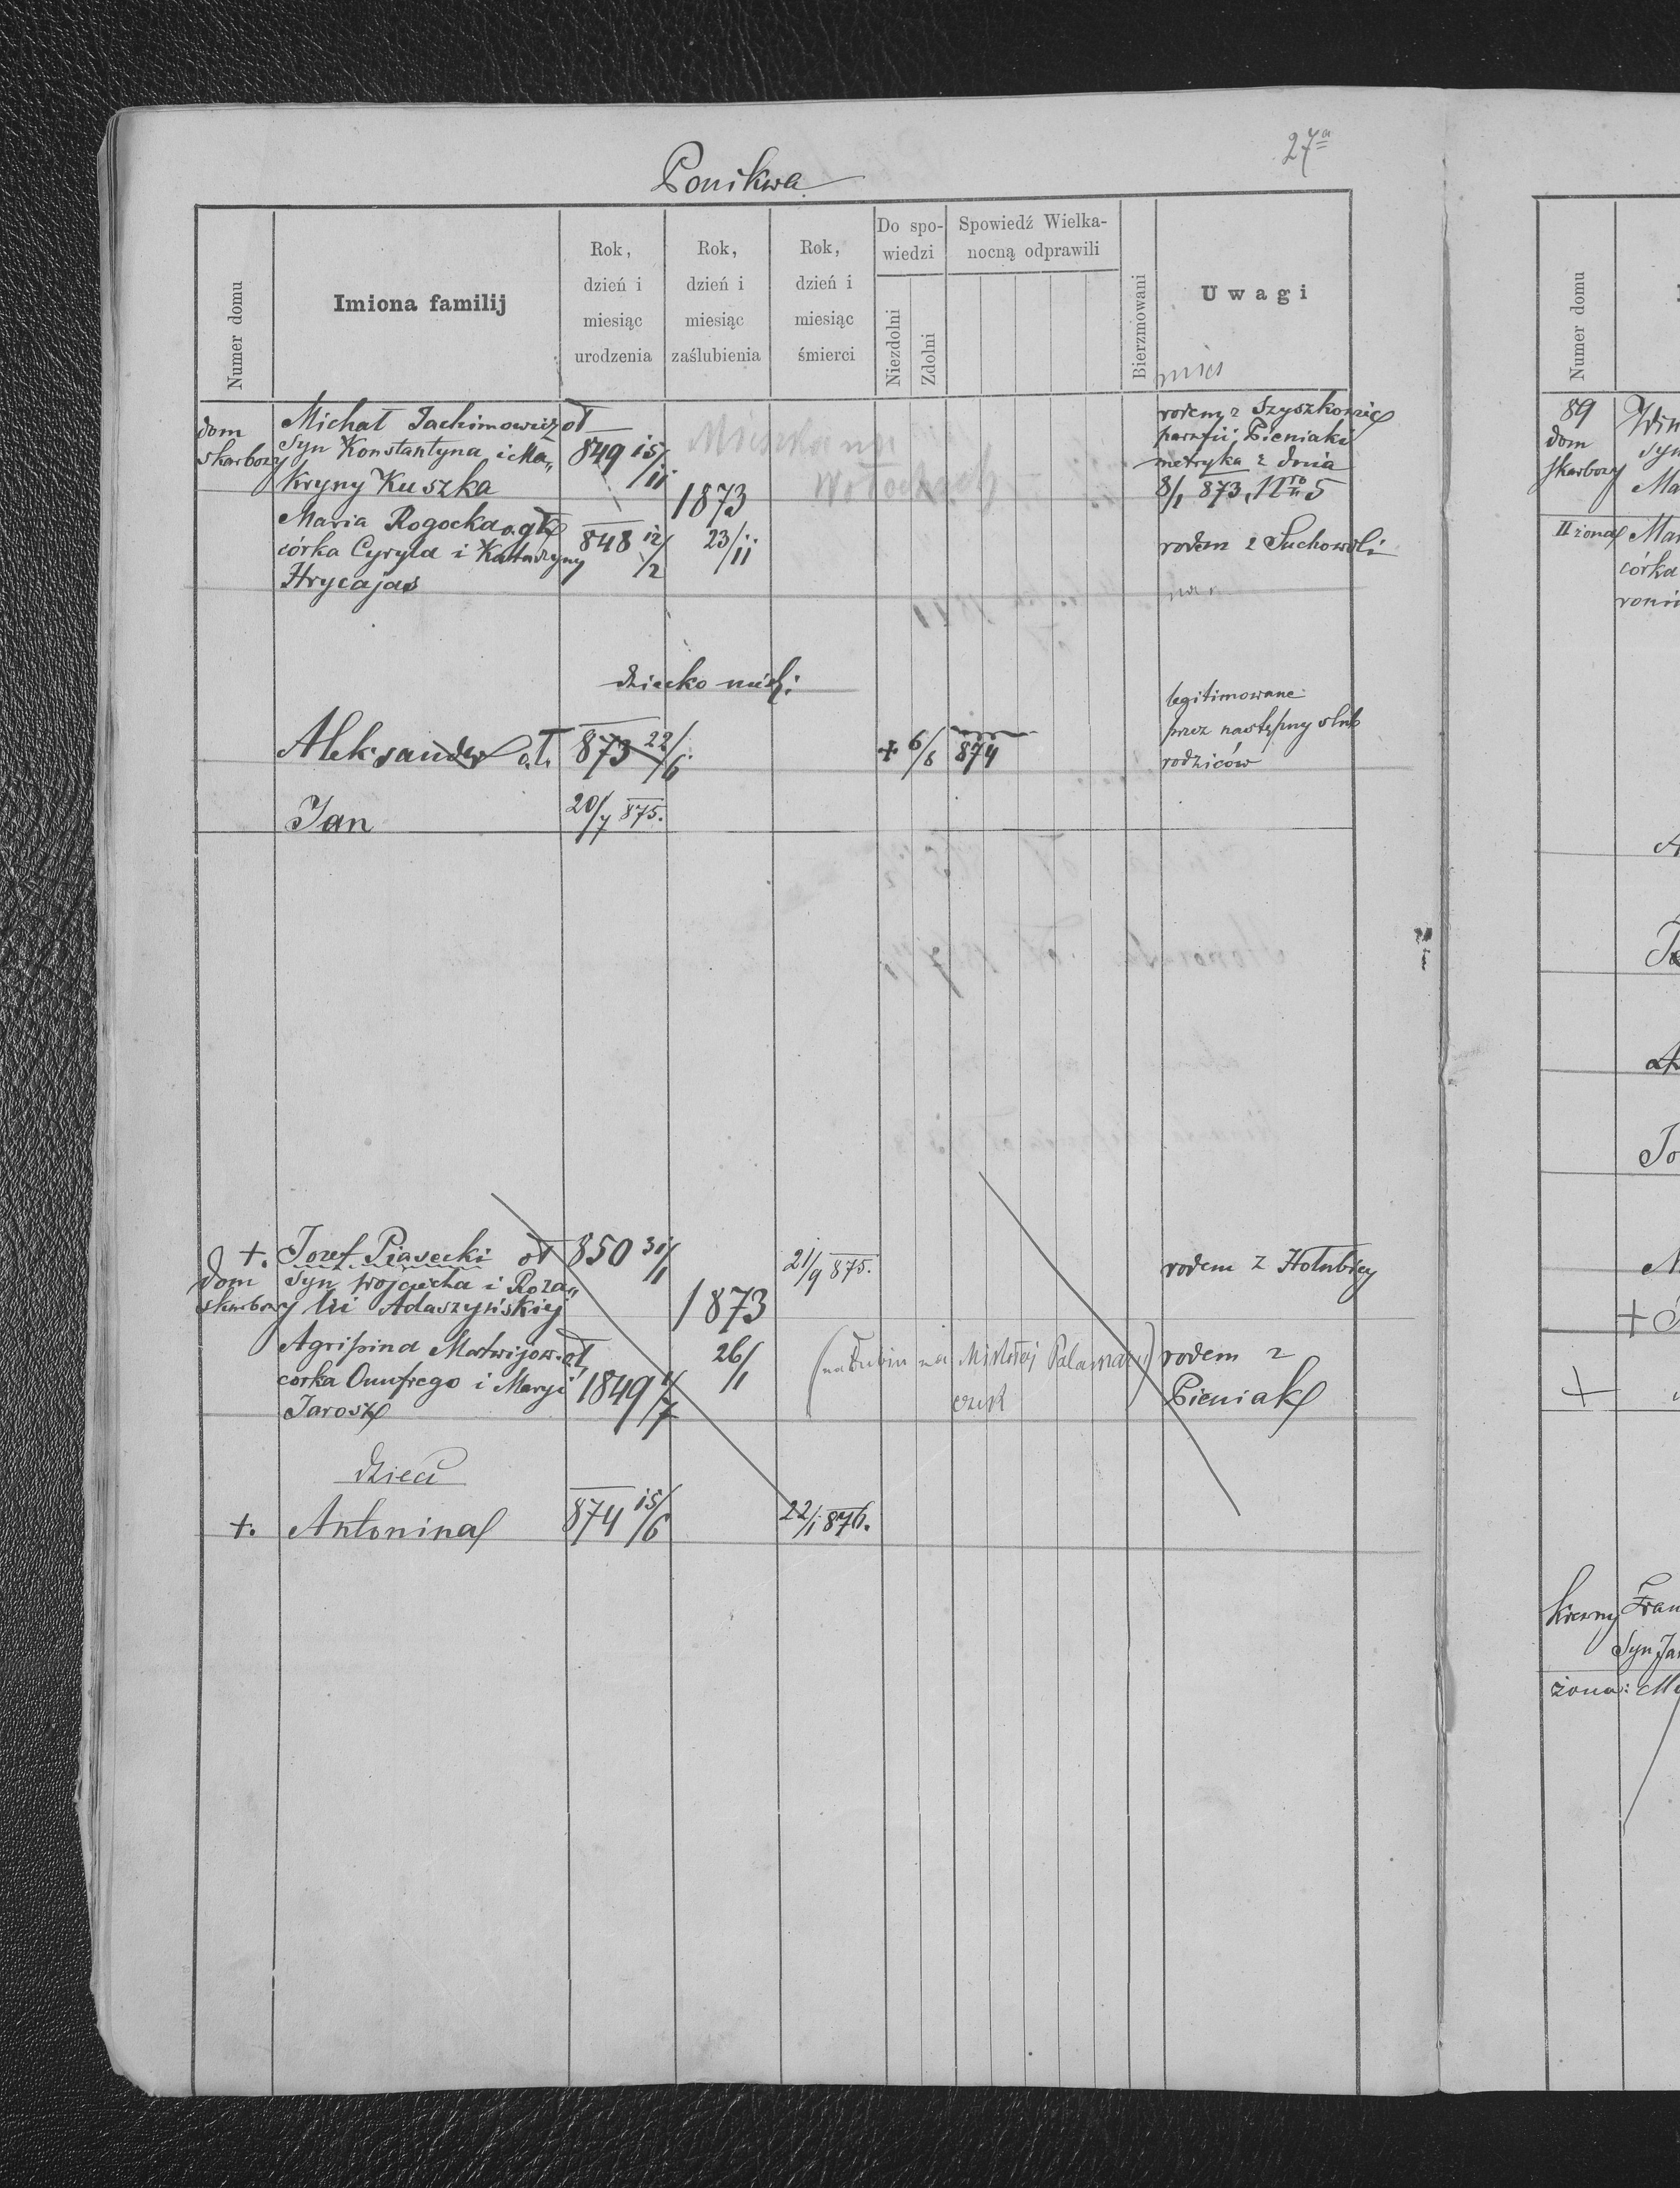 27ª
Ponikwa
Numer domu
Imiona familij
Rok, dzień i miesiąc urodzenia
Rok, dzień i miesiąc zaślubienia
Rok, dzień i miesiąc śmierci
Do spowiedzi
Niezdolni
Zdolni
Spowiedź Wielkanocną odprawili
Bierzmowani
Uwagi
dom skarbowy
Michał Jachimowicz ał
syn Konstantyna i Ma„
kryny Kuszka
849 15/11
1873
23/11
Mieszkanie
Włochach
rodem z Szyszkowiec
parafii Pieniaki
metryka z dnia
8/1 873, Nro 5
Maria Rogocka
córka Cyryla i Katarzyny
Hrycajas
848 12/2
rodem z Suchowoli
dziecko
Aleksander o.ł.
873 22/6
+ 6/8 874
legitimowane
przez następny slub
rodziców
Jan
20/7 875.
+.
dom
skarbowy
Jozef Piasecki ał
syn Wojciecha i Roza„
lii Adaszyńskiej
850 31/1
1873
26/1
21/9 875.
rodem z Hołubicy
Agripina Matwijow ał
corka Onufrego i Maryi
Jarosz
1849 4/7
na Mikołaj
rodem z
Pieniak
dzieci
+.
Antonina
874 15/6
22/1 876.
Numer domu
89
dom
skarbowy
II żona
Mar
córka
Kreżny
Fran
Syn Jan
żona: